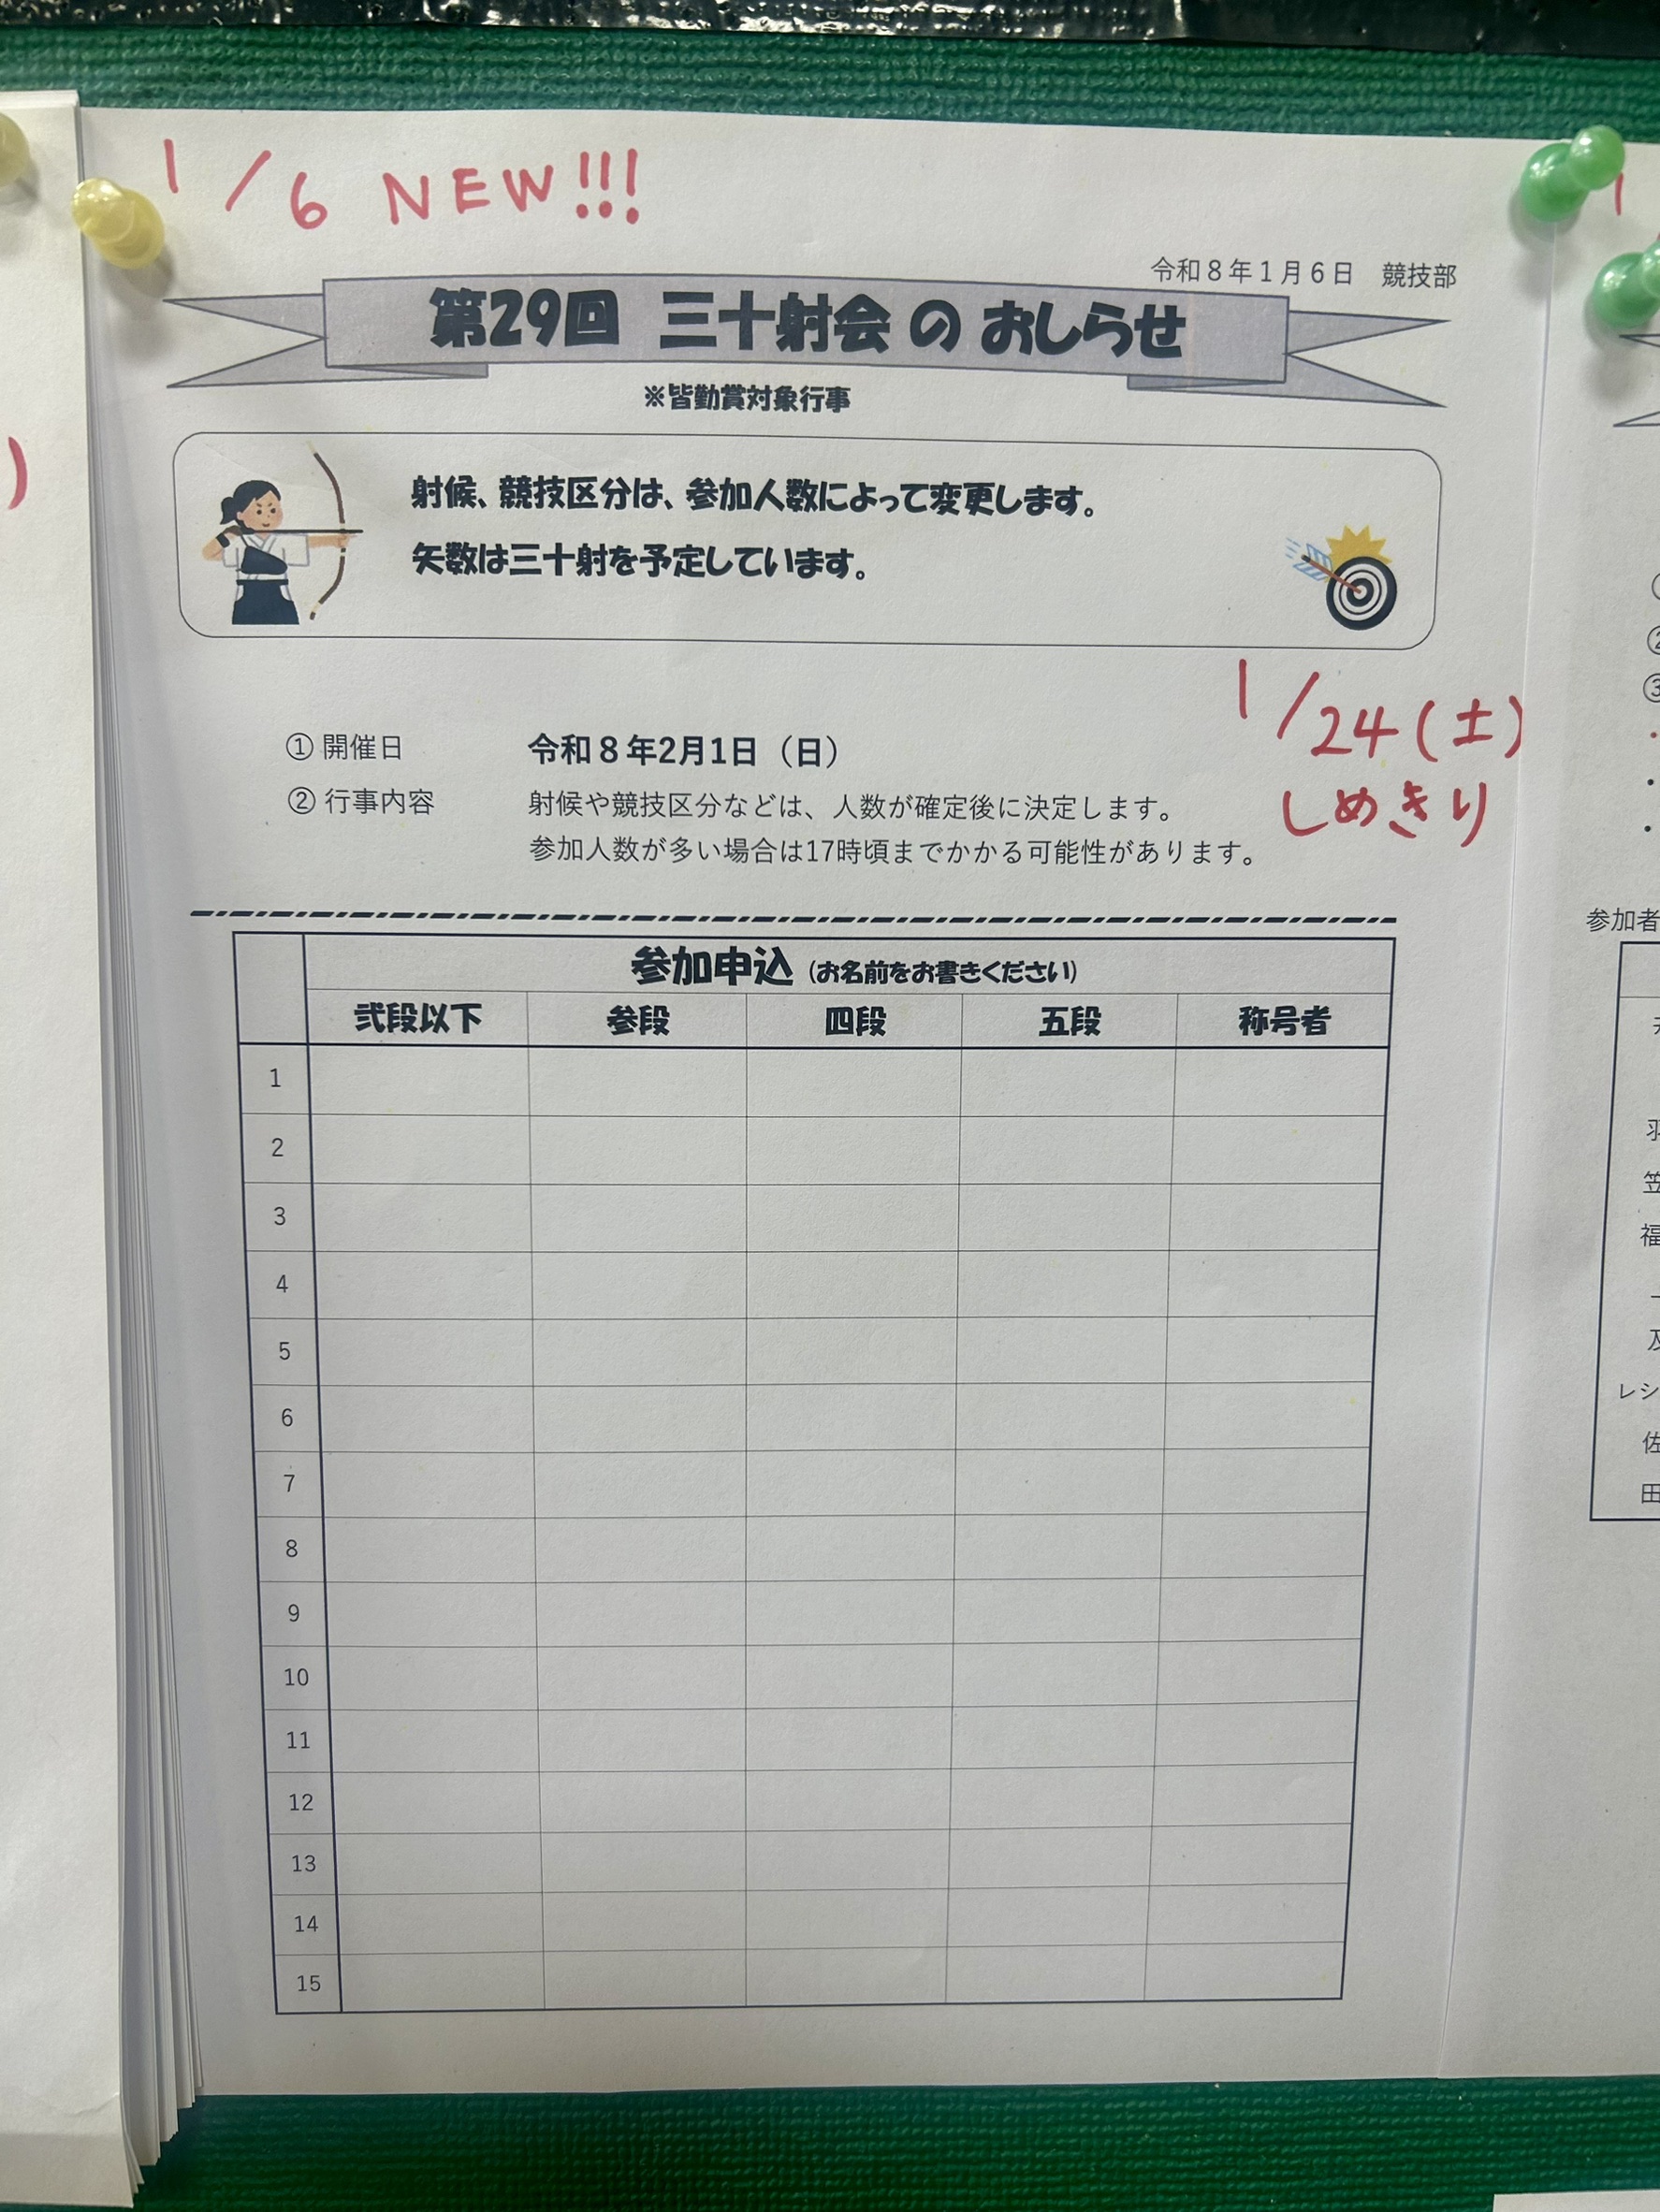 1/6 NEW!!!
令和８年１月６日　競技部
第29回　三十射会 の おしらせ
※皆勤賞対象行事
射候、競技区分は、参加人数によって変更します。
矢数は三十射を予定しています。
1/24(土)
しめきり
① 開催日　令和８年2月1日（日）
② 行事内容　射候や競技区分などは、人数が確定後に決定します。
参加人数が多い場合は17時頃までかかる可能性があります。
参加申込（お名前をお書きください）
弐段以下　参段　四段　五段　称号者
1
2
3
4
5
6
7
8
9
10
11
12
13
14
15
参加者
羽
笠
福
及
レシ
佐
田